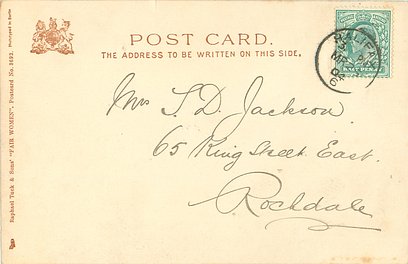 POST CARD.
THE ADDRESS TO BE WRITTEN ON THIS SIDE.
Mrs T. D. Jackson.
65 King Street East.
Rochdale
Raphael Tuck & Sons' "FAIR WOMEN". Postcard No. 3693.
Phototyped in Berlin
HALF PENNY